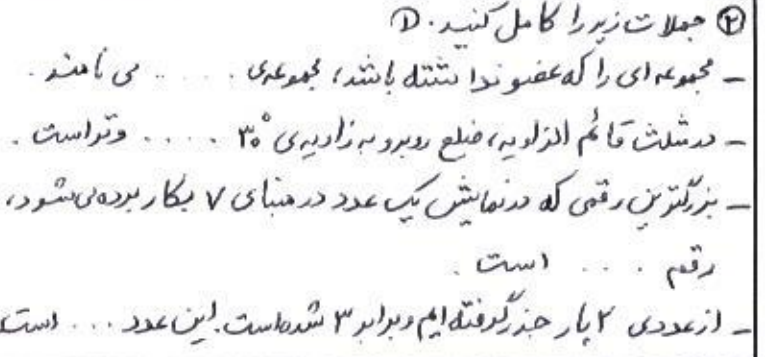 ۲ جملات زیر را کامل کنید. ①
- مجموعه ای را که عضو نداشته باشد، مجموعه ی ..... می نامند.
- در مثلث قائم الزاویه، ضلع روبرو به زاویه ی ۳۰° ..... وتر است.
- بزرگترین رقمی که در نمایش یک عدد در مبنای ۷ بکار برده می شود،
رقم .... است.
- از عددی ۲ بار جذر گرفته ایم و برابر ۳ شده است. این عدد ... است